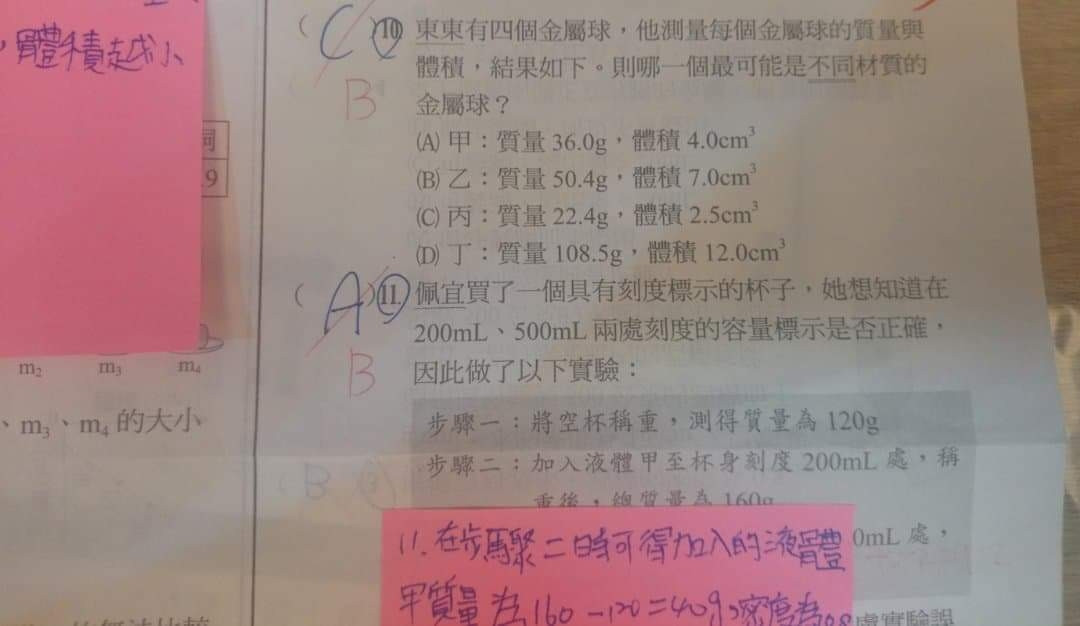 ，體積越小
9
m₂ m₃ m₄
、m₃、m₄ 的大小
( C ) 10. 東東有四個金屬球，他測量每個金屬球的質量與
B
體積，結果如下。則哪一個最可能是不同材質的
金屬球？
(A) 甲：質量 36.0g，體積 4.0cm³
(B) 乙：質量 50.4g，體積 7.0cm³
(C) 丙：質量 22.4g，體積 2.5cm³
(D) 丁：質量 108.5g，體積 12.0cm³
( A ) 11. 佩宜買了一個具有刻度標示的杯子，她想知道在
200mL、500mL 兩處刻度的容量標示是否正確，
B
因此做了以下實驗：
步驟一：將空杯稱重，測得質量為 120g
步驟二：加入液體甲至杯身刻度 200mL 處，稱
重後，總質量為 160g
0mL 處，
11. 在步驟二時可得加入的液體
甲質量為160-120=40g，密度為0.8
處實驗誤